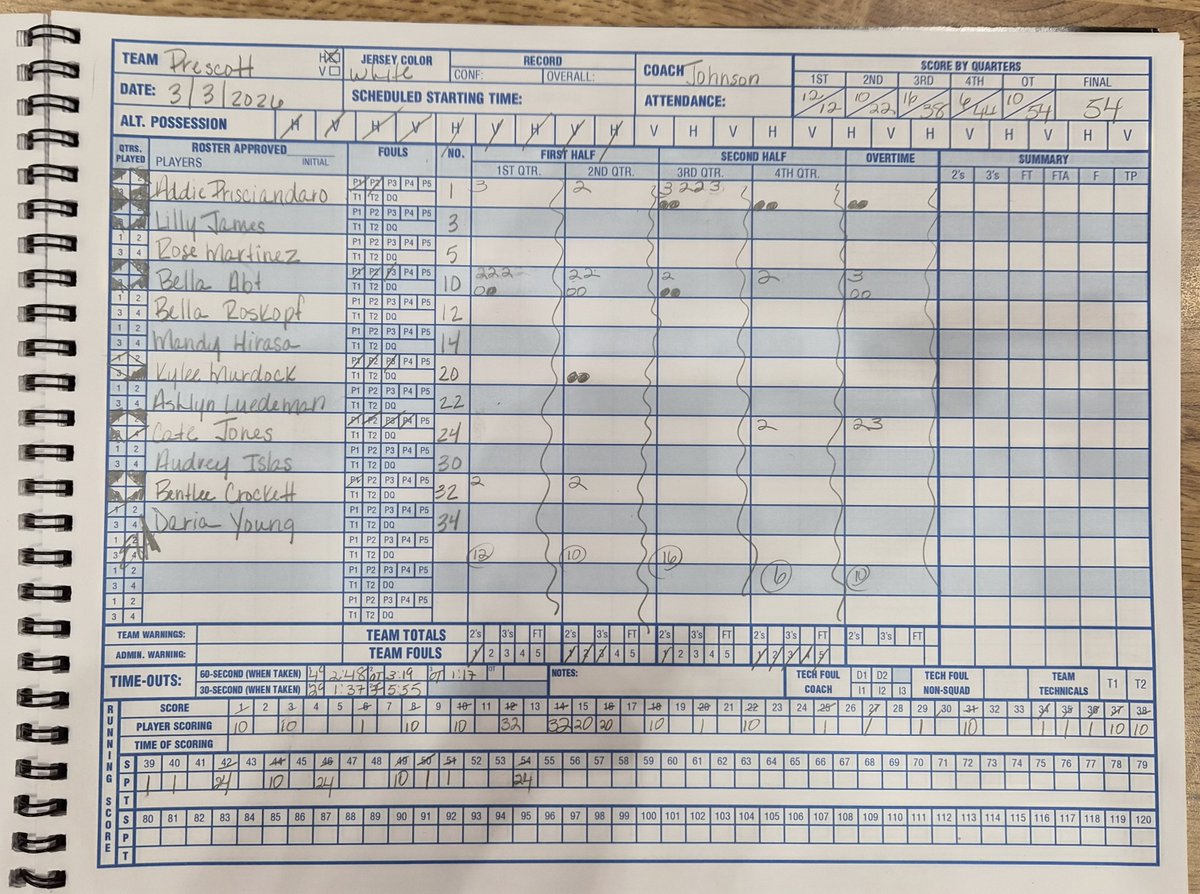 TEAM Prescott H V JERSEY COLOR White RECORD CONF: OVERALL: COACH Johnson SCORE BY QUARTERS
1ST 2ND 3RD 4TH OT FINAL
12/12 10/22 16/38 6/44 10/54 54
DATE: 3/3/2026 SCHEDULED STARTING TIME: ATTENDANCE:
ALT. POSSESSION H V H V H V H V H V H V H V H V H V H V H V
QTRS. PLAYED ROSTER APPROVED INITIAL PLAYERS FOULS NO. FIRST HALF SECOND HALF OVERTIME SUMMARY
1ST QTR. 2ND QTR. 3RD QTR. 4TH QTR. 2's 3's FT FTA F TP
Addie Prisciandaro P1 P2 P3 P4 P5 1 3 2 3 2 2 3
T1 T2 DQ
Lilly James P1 P2 P3 P4 P5 3
T1 T2 DQ
1 2 Rose Martinez P1 P2 P3 P4 P5 5
3 4 T1 T2 DQ
Bella Abt P1 P2 P3 P4 P5 10 2 2 2 2 2 2 2 3
T1 T2 DQ
1 2 Bella Roskopf P1 P2 P3 P4 P5 12
3 4 T1 T2 DQ
1 2 Mandy Hirasa P1 P2 P3 P4 P5 14
3 4 T1 T2 DQ
Kylee Murdock P1 P2 P3 P4 P5 20
T1 T2 DQ
1 2 Ashlyn Luedeman P1 P2 P3 P4 P5 22
3 4 T1 T2 DQ
Cate Jones P1 P2 P3 P4 P5 24 2 2 3
T1 T2 DQ
1 2 Audrey Islas P1 P2 P3 P4 P5 30
3 4 T1 T2 DQ
Bentlee Crockett P1 P2 P3 P4 P5 32 2 2
T1 T2 DQ
1 2 Daria Young P1 P2 P3 P4 P5 34
3 4 T1 T2 DQ
1 2 P1 P2 P3 P4 P5
3 4 T1 T2 DQ 12 10 16
1 2 P1 P2 P3 P4 P5 6 10
3 4 T1 T2 DQ
1 2 P1 P2 P3 P4 P5
3 4 T1 T2 DQ
TEAM WARNINGS: TEAM TOTALS 2's 3's FT 2's 3's FT 2's 3's FT 2's 3's FT 2's 3's FT
ADMIN. WARNING: TEAM FOULS 1 2 3 4 5 1 2 3 4 5 1 2 3 4 5 1 2 3 4 5
TIME-OUTS: 60-SECOND (WHEN TAKEN) 2:48 OT 3:19 OT 1:17 OT NOTES: TECH FOUL COACH D1 D2 TECH FOUL NON-SQUAD TEAM TECHNICALS T1 T2
30-SECOND (WHEN TAKEN) 1:37 5:55 I1 I2 I3
RUNNING SCORE
SCORE 1 2 3 4 5 6 7 8 9 10 11 12 13 14 15 16 17 18 19 20 21 22 23 24 25 26 27 28 29 30 31 32 33 34 35 36 37 38
PLAYER SCORING 10 10 1 10 10 32 32 20 20 10 1 10 1 1 1 10 1 1 1 10 10
TIME OF SCORING
S 39 40 41 42 43 44 45 46 47 48 49 50 51 52 53 54 55 56 57 58 59 60 61 62 63 64 65 66 67 68 69 70 71 72 73 74 75 76 77 78 79
P 1 1 24 10 24 10 1 1 24
T
S 80 81 82 83 84 85 86 87 88 89 90 91 92 93 94 95 96 97 98 99 100 101 102 103 104 105 106 107 108 109 110 111 112 113 114 115 116 117 118 119 120
P
T